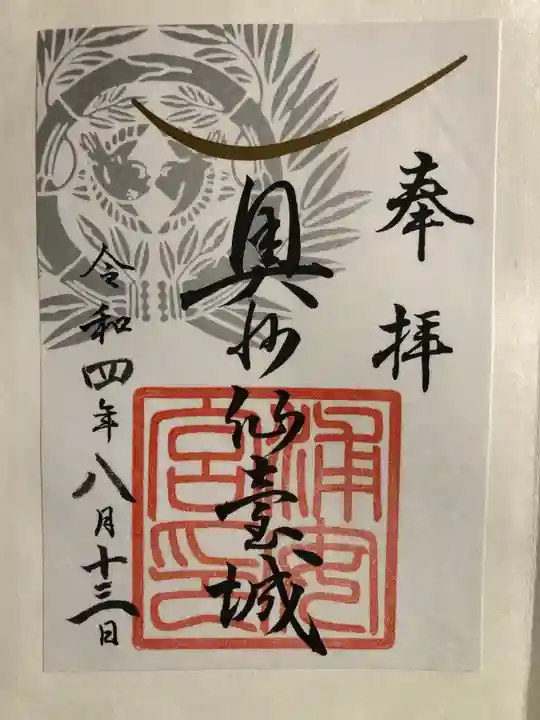 奉拝
奥州仙臺城
令和四年八月十三日
浦安
宮印